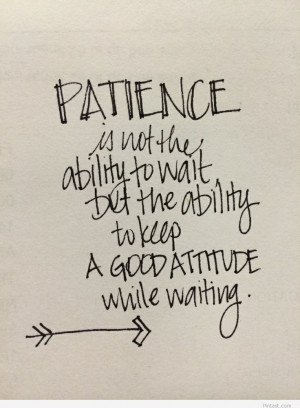 PATIENCE
is not the
ability to wait,
but the ability
to keep
A GOOD ATTITUDE
while waiting.